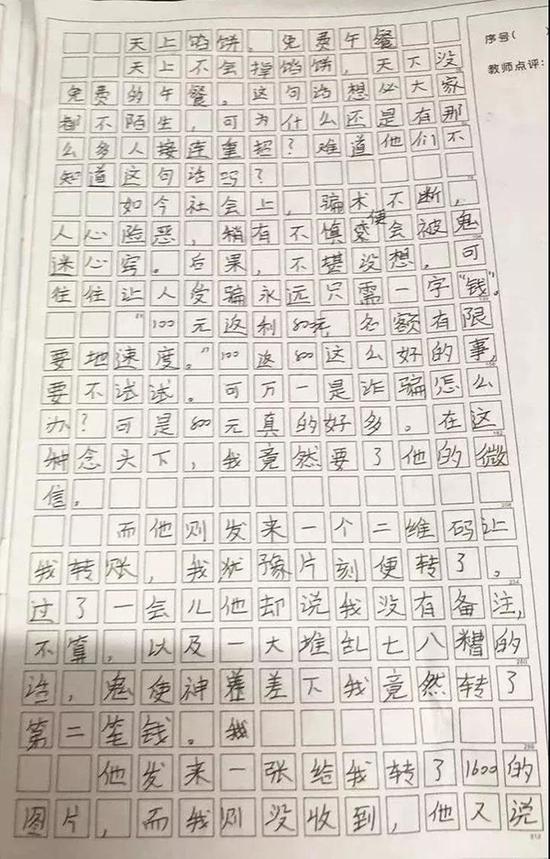 天上馅饼,免费午餐
序号(
教师点评:
天上不会掉馅饼,天下没
免费的午餐。这句话想必大家
都不陌生,可为什么还是有那
么多人接连重蹈?难道他们不
知道这句话吗?
如今社会上,骗术不断,
人心险恶,稍有不慎便会被鬼
迷心窍。后果,不堪没想。可
往往让人受骗永远只需一字“钱”。
“100元返利800元,名额有限
要地速度。”100返800这么好的事,
要不试试。可万一是诈骗怎么
办?可是800元真的好多。在这
种念头下,我竟然要了他的微
信。
而他则发来一个二维码让
我转账,我犹豫片刻便转了。
过了一会儿他却说我没有备注,
不算。以及一大堆乱七八糟的
话,鬼使神差差下我竟然转了
第二笔钱。我
他发来一张给我转了1600的
图片,而我则没收到,他又说